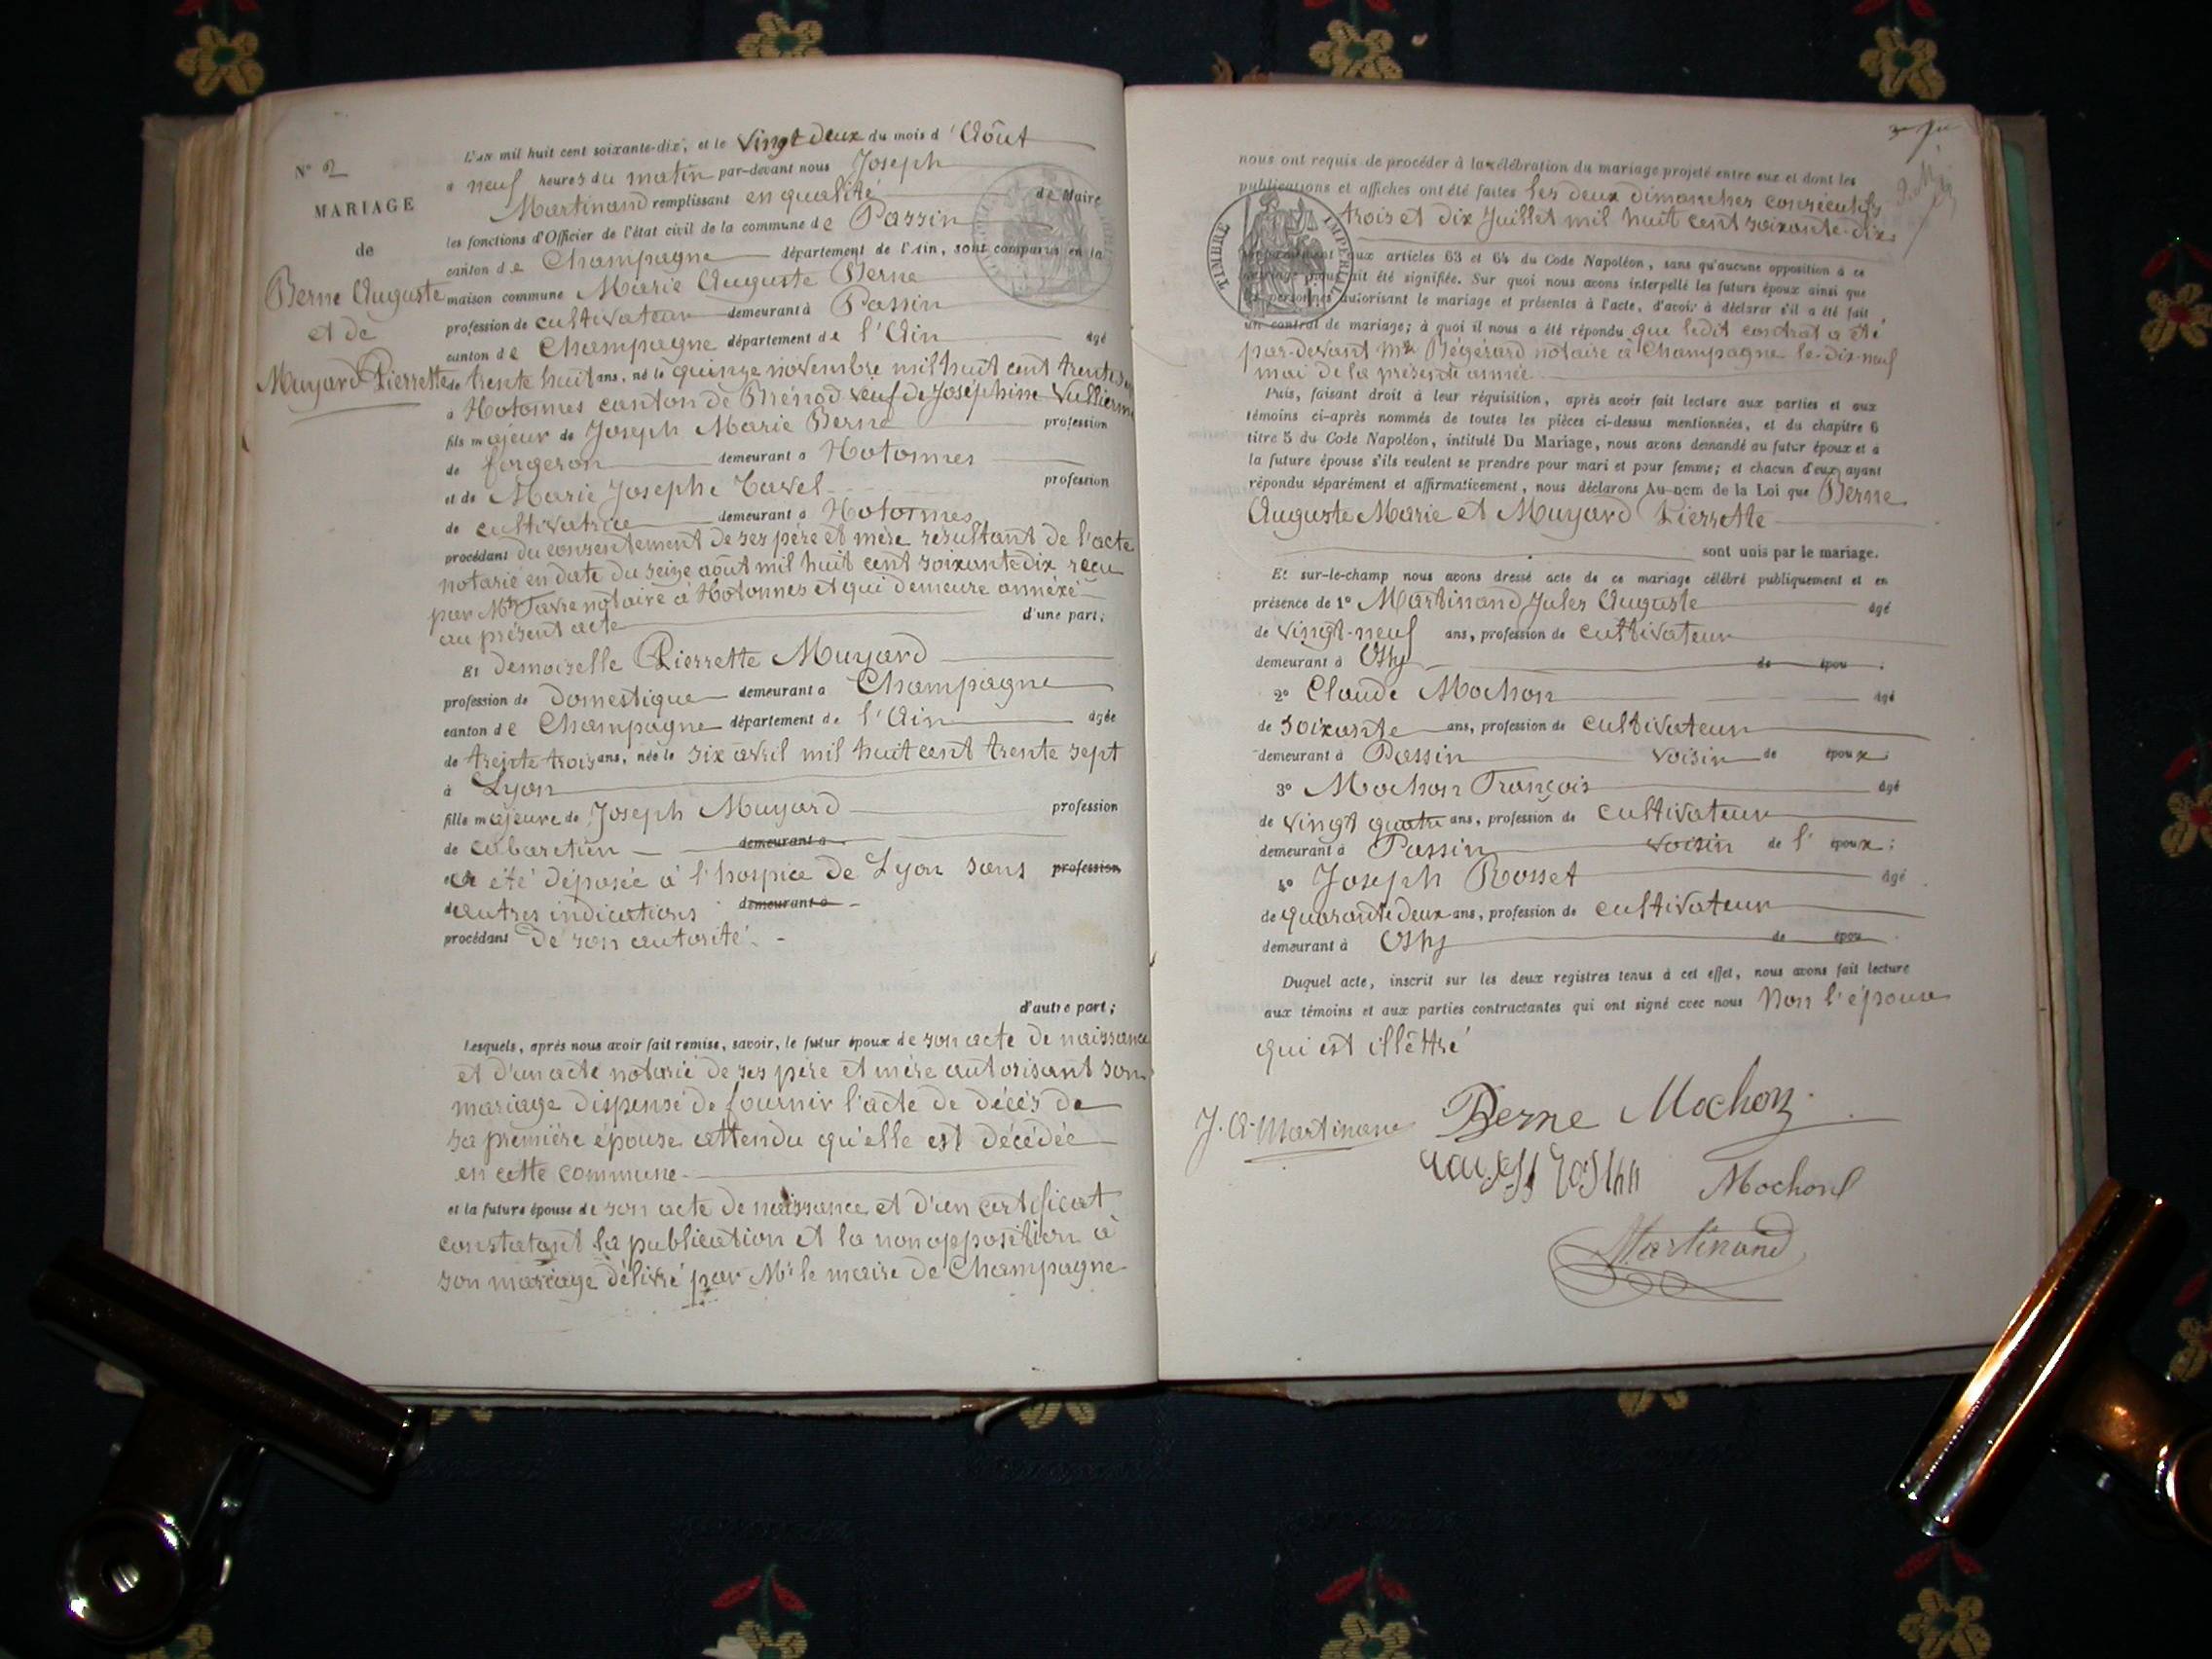 N° 2
MARIAGE
de
Berne Auguste
et de
Muyard Pierrette
L'an mil huit cent soixante-dix, et le vingt deux du mois d'Août
à neuf heures du matin par-devant nous Joseph
Martinand remplissant en qualité de Maire
les fonctions d'Officier de l'état civil de la commune de Passin
canton de Champagne département de l'Ain, sont comparus en la
maison commune Marie Auguste Berne
profession de cultivateur demeurant à Passin
canton de Champagne département de l'Ain âgé
de trente huit ans, né le quinze novembre mil huit cent trente
à Hotonnes canton de Brénod veuf de Joséphine
fils majeur de Joseph Marie Berne profession
de forgeron demeurant à Hotonnes
et de Marie Josephe Tavel profession
de cultivatrice demeurant à Hotonnes
procédant du consentement de ses père et mère résultant de l'acte
notarié en date du seize août mil huit cent soixante dix reçu
par Mtre notaire à Hotonnes et qui demeure annéxé
au présent acte d'une part;
Et demoiselle Pierrette Muyard
profession de Domestique demeurant à Champagne
canton de Champagne département de l'Ain âgée
de trente trois ans, née le six avril mil huit cent trente sept
à Lyon
fille majeure de Joseph Muyard profession
de cabaretier demeurant à
et a été déposée à l'hospice de Lyon sans profession
de autres indications demeurant à
procédant de son autorité.
d'autre part;
Lesquels, après nous avoir fait remise, savoir, le futur époux de son acte de naissance
et d'un acte notarié de ses père et mère autorisant son
mariage dispensé de fournir l'acte de décés de
sa première épouse attendu qu'elle est décédée
en cette commune.
et la future épouse de son acte de naissance et d'un certificat
constatant la publication et la non opposition à
son mariage délivré par Mr le maire de Champagne
nous ont requis de procéder à la célébration du mariage projeté entre eux et dont les
publications et affiches ont été faites les deux dimanches consécutifs
trois et dix Juillet mil huit cent soixante-dix
TIMBRE IMPERIAL
conformément aux articles 63 et 64 du Code Napoléon, sans qu'aucune opposition à ce
mariage nous ait été signifiée. Sur quoi nous avons interpellé les futurs époux ainsi que
les personnes autorisant le mariage et présentes à l'acte, d'avoir à déclarer s'il a été fait
un contrat de mariage; à quoi il nous a été répondu que ledit contrat a été
par-devant Mtre Bégérard notaire à Champagne le dix-neuf
mai de la présente année
Puis, faisant droit à leur réquisition, après avoir fait lecture aux parties et aux
témoins ci-après nommés de toutes les pièces ci-dessus mentionnées, et du chapitre 6
titre 5 du Code Napoléon, intitulé Du Mariage, nous avons demandé au futur époux et à
la future épouse s'ils veulent se prendre pour mari et pour femme; et chacun d'eux ayant
répondu séparément et affirmativement, nous déclarons Au nom de la Loi que Berne
Auguste Marie et Muyard Pierrette
sont unis par le mariage.
Et sur-le-champ nous avons dressé acte de ce mariage célébré publiquement et en
présence de 1° Martinand Jules Auguste âgé
de vingt-neuf ans, profession de cultivateur
demeurant à Ossy de épou ;
2° Claude Mochon âgé
de soixante ans, profession de cultivateur
demeurant à Passin voisin de époux;
3° Mochon François âgé
de vingt quatre ans, profession de cultivateur
demeurant à Passin voisin de l'époux;
4° Joseph Rosset âgé
de quarante deux ans, profession de cultivateur
demeurant à Ossy de épou
Duquel acte, inscrit sur les deux registres tenus à cet effet, nous avons fait lecture
aux témoins et aux parties contractantes qui ont signé avec nous Non l'épouse
qui est illéttré
J. A. Martinand Berne Mochon
Mochon
Martinand